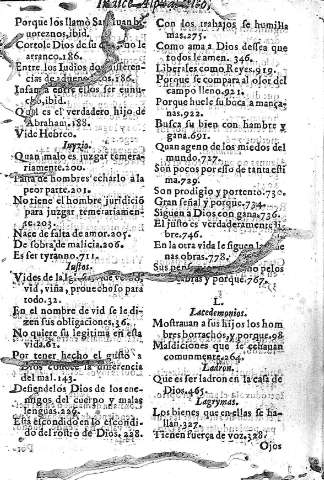 Indice Alphabetico,
Porque los llamò San Iuan b
uoreznos, ibid.
Cortole Dios de su no le
arranco. 186.
Entre los Iudios dos diferen
cias de aduenedizos. 186.
Infamia entre ellos ser eunu-
cho, ibid.
Qual es el verdadero hijo de
Abraham. 188.
Vide Hebreo.
Iuyzio.
Quan malo es juzgar temera-
riamente. 200.
Falta de hombres echarlo à la
peor parte. 201.
No tiene el hombre juridició
para juzgar temerariamen-
se. 203.
Nace de falta de amor. 205.
De sobra de malicia. 206.
Es ser tyranno. 711.
Iustos.
Vides de la
vid, viña, prouechoso para
todo. 32.
En el nombre de vid se le di-
zen sus obligaciones. 36.
No quiere su legitima en esta
vida. 61.
Por tener hecho el gusto à
Dios conoce la diferencia
del mal. 143.
Defiendelos Dios de los ene-
migos del cuerpo y malas
lenguas. 229.
Està escondido en lo escondi-
do del rostro de Dios. 228.
Con los trabajos se humilla
mas. 275.
Como ama à Dios dessea que
todos le amen. 346.
Libertales como Reyes. 919.
Porque se compara al olor del
campo lleno. 921.
Porque huele su boca a mança-
nas. 922.
Busca su bien con hambre y
gana. 691.
Quan ageno de los miedos del
mundo. 727.
Son pocos por esso de tanta esti
ma. 729.
Son prodigio y portento. 730.
Gran señal y porque. 734.
Siguen à Dios con gana. 736.
El justo es verdaderamente li-
bre. 746.
En la otra vida le siguen las
nas obras. 778.
Sus no pelos
bras y porque. 767.
L.
Lacedemonios.
Mostrauan a sus hijos los hom
bres borrachos, y porque. 98
Maldiciones que se echauan
comunmente. 264.
Ladron.
Que es ser ladron en la casa de
Dios. 465.
Lagrymas.
Los bienes que en ellas se ha-
llan. 327.
Tienen fuerça de voz. 328.
Ojos